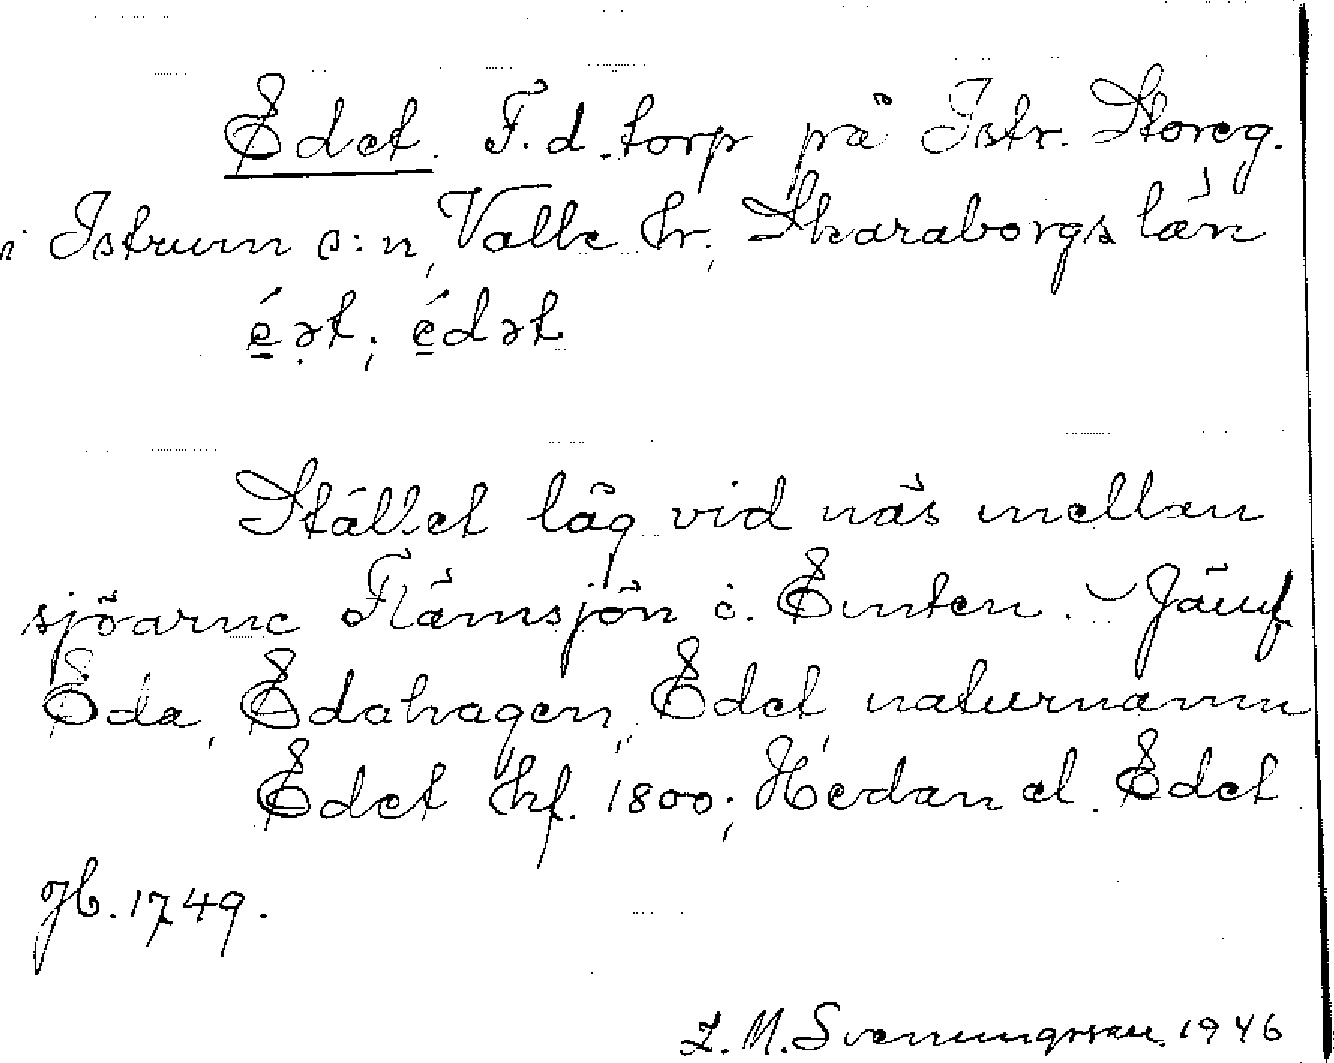 Edet. F.d. torp på Istr. Storeg.
i Istrum s:n, Valle hr, Skaraborgs län
é̱ət; é̱dət
Stället låg vid näs mellan
sjöarne Flämsjön o. Emten. – Jämf
Eda, Edahagen, Edet, naturnamn
Edet hf. 1800; Hedan el. Edet
Jb. 1749.
Z. M. Svenungsson 1946